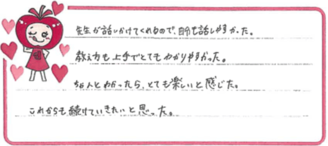 先生が話しかけてくれるので、自分も話しやすかった。
教え方も上手でとてもわかりやすかった。
わかったら、とても楽しいと感じた。
これからも続けていきたいと思った。